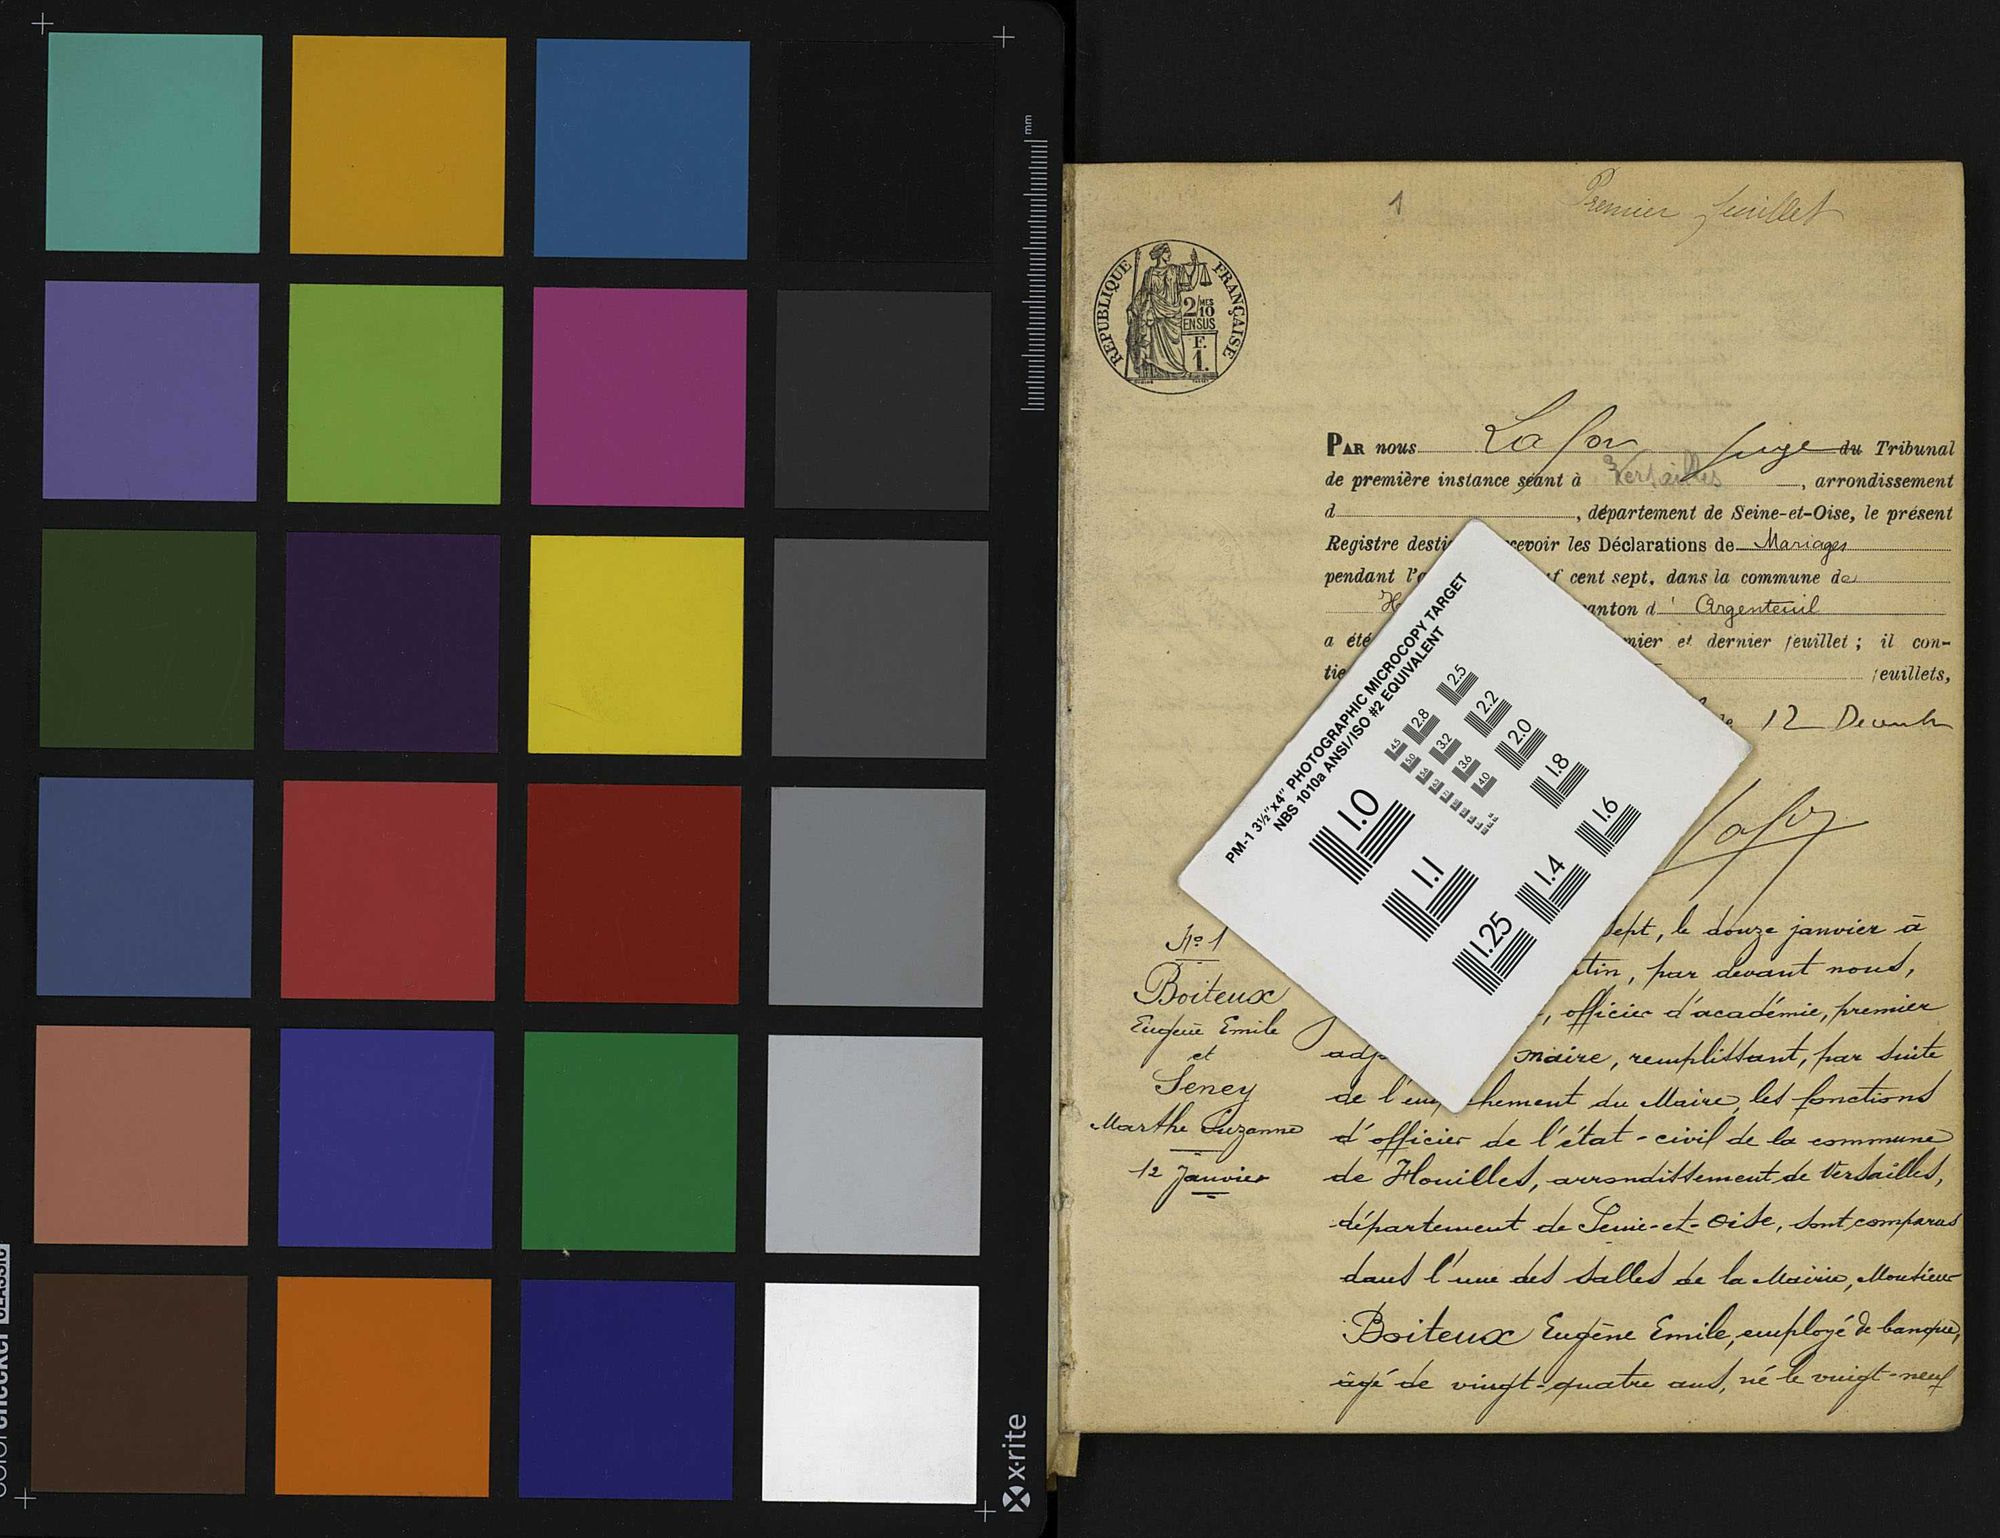 mm
x·rite
colorchecker CLASSIC
1
Premier feuillet
RÉPUBLIQUE FRANÇAISE
2/MES
10
EN SUS
F.
1.
PAR nous Lafon juge du Tribunal
de première instance séant à Versailles, arrondissement
d, département de Seine-et-Oise, le présent
Registre desti cevoir les Déclarations de Mariages
pendant l'a f cent sept, dans la commune de
H anton d' Argenteuil
a été mier et dernier feuillet ; il con-
tie feuillets,
le 12 Decemb
PM-1 3½"x4" PHOTOGRAPHIC MICROCOPY TARGET
NBS 1010a ANSI/ISO #2 EQUIVALENT
2.5
2.8
2.2
4.5
3.2
2.0
5.0
3.6
1.8
4.0
1.0
1.6
1.1
1.4
1.25
No 1
Boiteux
Eugène Emile
et
Seney
Marthe Suzanne
12 Janvier
sept, le douze janvier à
tin, par devant nous,
, officier d'académie, premier
adj maire, remplissant, par suite
de l'em chement du Maire, les fonctions
d'officier de l'état-civil de la commune
de Houilles, arrondissement de Versailles,
département de Seine-et-Oise, sont comparus
dans l'une des salles de la Mairie, Monsieur
Boiteux Eugène Emile, employé de banque,
âgé de vingt-quatre ans, né le vingt-neuf